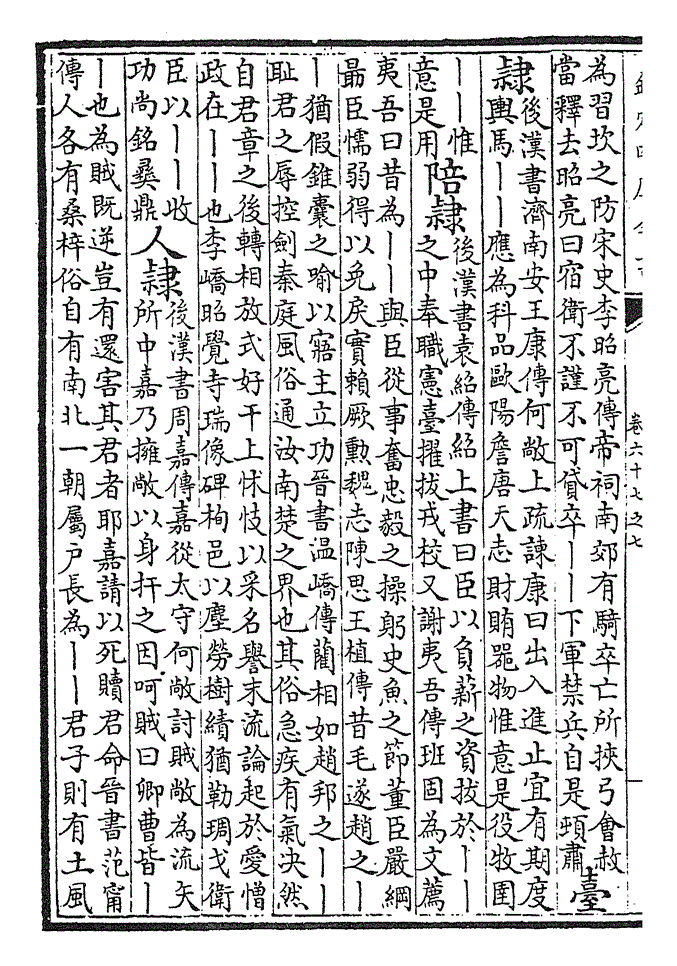 卷六十七之七
為習坎之防宋史李昭亮傳帝祠南郊有騎卒亡所挾弓會赦
當釋去昭亮曰宿衛不謹不可貸卒丨丨下軍禁兵自是頓肅
臺
隸
後漢書濟南安王康傳何敞上疏諫康曰出入進止宜有期度
輿馬丨丨應為科品歐陽詹唐天志財賄噐物惟意是役牧圉
丨丨惟
意是用
陪隸
後漢書袁紹傳紹上書曰臣以負薪之資拔於丨丨
之中奉職憲臺擢拔戎校又謝夷吾傳班固為文薦
夷吾曰昔為丨丨與臣從事奮忠毅之操躬史魚之節董臣嚴綱
朂臣懦弱得以免戾實賴厥勳魏志陳思王植傳昔毛遂趙之丨
丨猶假錐囊之喻以寤主立功晉書温嶠傳藺相如趙邦之丨丨
恥君之辱控劍秦庭風俗通汝南楚之界也其俗急疾有氣决然
自君章之後轉相放式好干上怵忮以采名譽末流論起於愛憎
政在丨丨也李嶠昭覺寺瑞像碑栒邑以塵勞樹績猶勒琱戈衛
臣以丨丨收
功尚銘彛鼎
人隸
後漢書周嘉傳嘉從太守何敞討賊敞為流矢
所中嘉乃擁敞以身扞之因呵賊曰卿曹皆丨
丨也為賊既逆豈有還害其君者耶嘉請以死贖君命晉書范甯
傳人各有桑梓俗自有南北一朝屬户長為丨丨君子則有土風